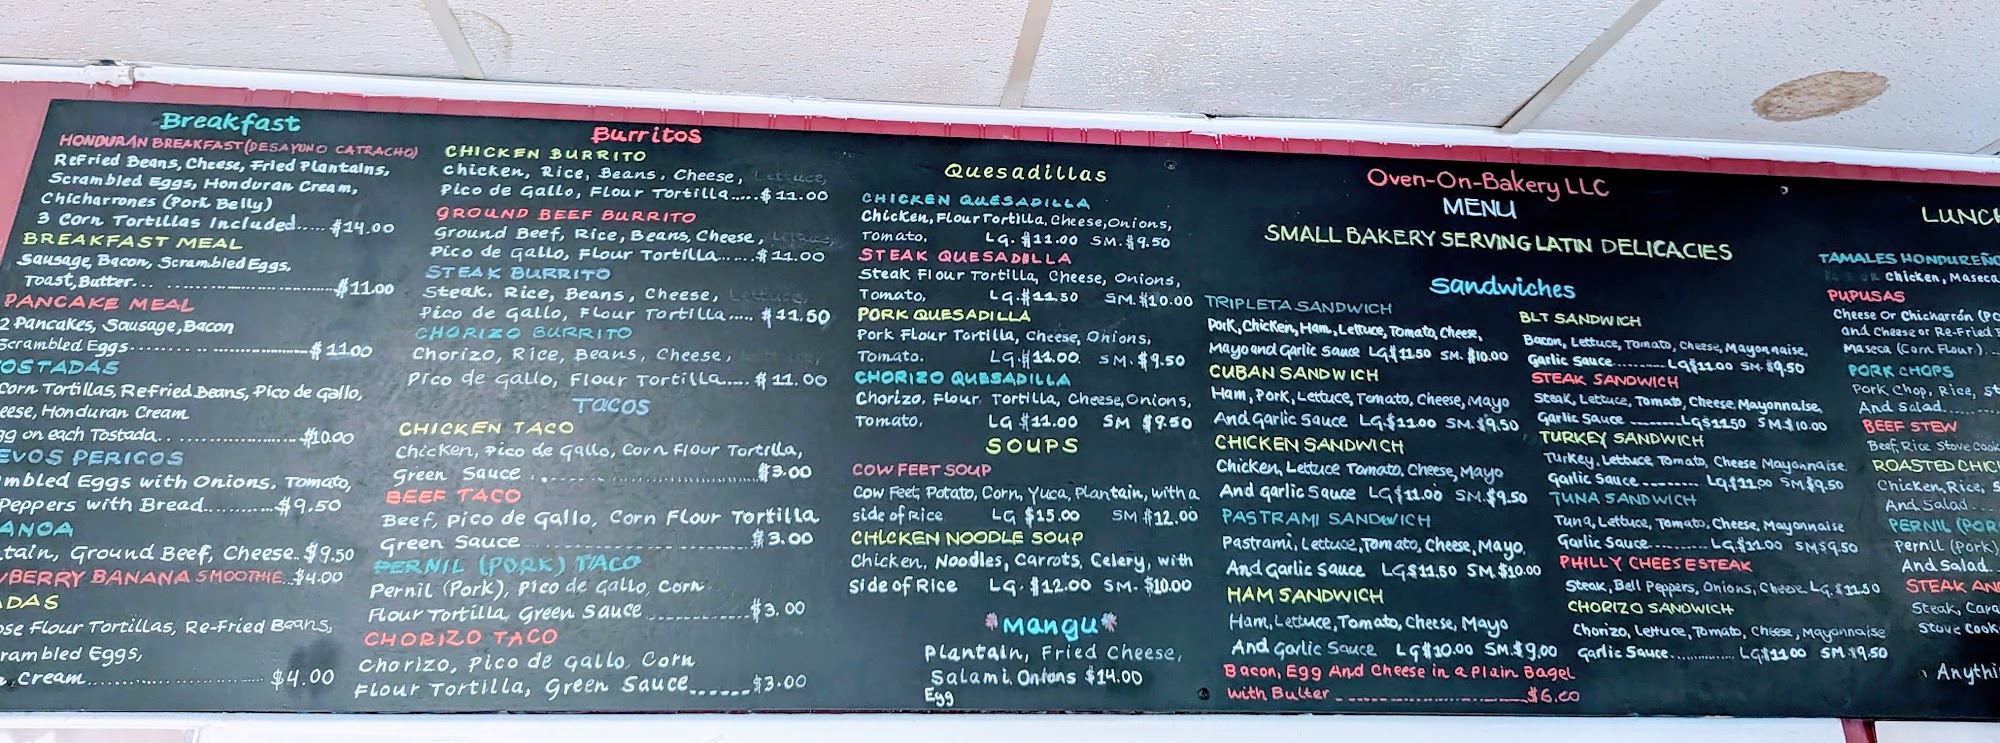 Breakfast
HONDURAN BREAKFAST (DESAYUNO CATRACHO)
Refried Beans, Cheese, Fried Plantains,
Scrambled Eggs, Honduran Cream,
Chicharrones (Pork Belly)
3 Corn Tortillas Included..... $14.00
BREAKFAST MEAL
Sausage, Bacon, Scrambled Eggs,
Toast, Butter... $11.00
PANCAKE MEAL
2 Pancakes, Sausage, Bacon
Scrambled Eggs $11.00
OSTADAS
Corn Tortillas, Refried Beans, Pico de Gallo,
eese, Honduran Cream
gg on each Tostada $10.00
EVOS PERICOS
mbled Eggs with Onions, Tomato,
Peppers with Bread $9.50
ANOA
tain, Ground Beef, Cheese.. $9.50
WBERRY BANANA SMOOTHIE... $4.00
ADAS
ose Flour Tortillas, Re-Fried Beans,
rambled Eggs,
Cream $4.00
Burritos
CHICKEN BURRITO
Chicken, Rice, Beans, Cheese, Lettuce,
Pico de Gallo, Flour Tortilla..... $11.00
GROUND BEEF BURRITO
Ground Beef, Rice, Beans, Cheese, Lettuce,
Pico de Gallo, Flour Tortilla...... $11.00
STEAK BURRITO
Steak. Rice, Beans, Cheese, Lettuce,
Pico de Gallo, Flour Tortilla..... $11.50
CHORIZO BURRITO
Chorizo, Rice, Beans, Cheese, Lettuce,
Pico de Gallo, Flour Tortilla.... $11.00
TACOS
CHICKEN TACO
Chicken, Pico de Gallo, Corn Flour Tortilla,
Green Sauce $3.00
BEEF TACO
Beef, Pico de Gallo, Corn Flour Tortilla
Green Sauce $3.00
PERNIL (PORK) TACO
Pernil (Pork), Pico de Gallo, Corn
Flour Tortilla, Green Sauce $3.00
CHORIZO TACO
Chorizo, Pico de Gallo, Corn
Flour Tortilla, Green Sauce $3.00
Quesadillas
CHICKEN QUESADILLA
Chicken, Flour Tortilla, Cheese, Onions,
Tomato. LG. $11.00 SM. $9.50
STEAK QUESADILLA
Steak Flour Tortilla, Cheese, Onions,
Tomato, LG. $11.50 SM. $10.00
PORK QUESADILLA
Pork Flour Tortilla, Cheese, Onions,
Tomato. LG. $11.00. SM. $9.50
CHORIZO QUESADILLA
Chorizo, Flour Tortilla, Cheese, Onions,
Tomato. LG $11.00 SM $9.50
SOUPS
COW FEET SOUP
Cow Feet, Potato, Corn, Yuca, Plantain, with a
side of Rice LG $15.00 SM $12.00
CHICKEN NOODLE SOUP
Chicken, Noodles, Carrots, Celery, with
side of Rice LG. $12.00 SM. $10.00
*Mangu*
Plantain, Fried Cheese,
Salami, Onions $14.00
Egg
Oven-On-Bakery LLC
MENU
SMALL BAKERY SERVING LATIN DELICACIES
Sandwiches
TRIPLETA SANDWICH
Pork, Chicken, Ham, Lettuce, Tomato, Cheese,
Mayo and Garlic Sauce LG $11.50 SM. $10.00
CUBAN SANDWICH
Ham, Pork, Lettuce, Tomato, Cheese, Mayo
And Garlic Sauce LG $11.00 SM. $9.50
CHICKEN SANDWICH
Chicken, Lettuce Tomato, Cheese, Mayo
And Garlic Sauce LG $11.00 SM. $9.50
PASTRAMI SANDWICH
Pastrami, Lettuce, Tomato, Cheese, Mayo
And Garlic Sauce LG $11.50 SM. $10.00
HAM SANDWICH
Ham, Lettuce, Tomato, Cheese, Mayo
And Garlic Sauce LG $10.00 SM. $9.00
Bacon, Egg And Cheese in a Plain Bagel
With Butter $6.00
BLT SANDWICH
Bacon, Lettuce, Tomato, Cheese, Mayonnaise,
Garlic Sauce LG $11.00 SM. $9.50
STEAK SANDWICH
Steak, Lettuce, Tomato, Cheese, Mayonnaise,
Garlic Sauce LG $11.50 SM. $10.00
TURKEY SANDWICH
Turkey, Lettuce, Tomato, Cheese Mayonnaise
Garlic Sauce LG $11.00 SM. $9.50
TUNA SANDWICH
Tuna, Lettuce, Tomato, Cheese, Mayonnaise
Garlic Sauce LG. $11.00 SM $9.50
PHILLY CHEESESTEAK
Steak, Bell Peppers, Onions, Cheese LG. $11.50
CHORIZO SANDWICH
Chorizo, Lettuce, Tomato, Cheese, Mayonnaise
Garlic Sauce LG $11.00 SM. $9.50
LUNCH
TAMALES HONDUREÑO
Chicken, Maseca
PUPUSAS
Cheese Or Chicharrón (PO
and Cheese or Re-Fried B
Maseca (Corn Flour)
PORK CHOPS
Pork Chop, Rice, St
And Salad
BEEF STEW
Beef, Rice Stove Cook
ROASTED CHIC
Chicken, Rice, S
And Salad
PERNIL (POR
Pernil (Pork)
And Salad
STEAK AN
Steak, Cara
Stove Cook
Anythi